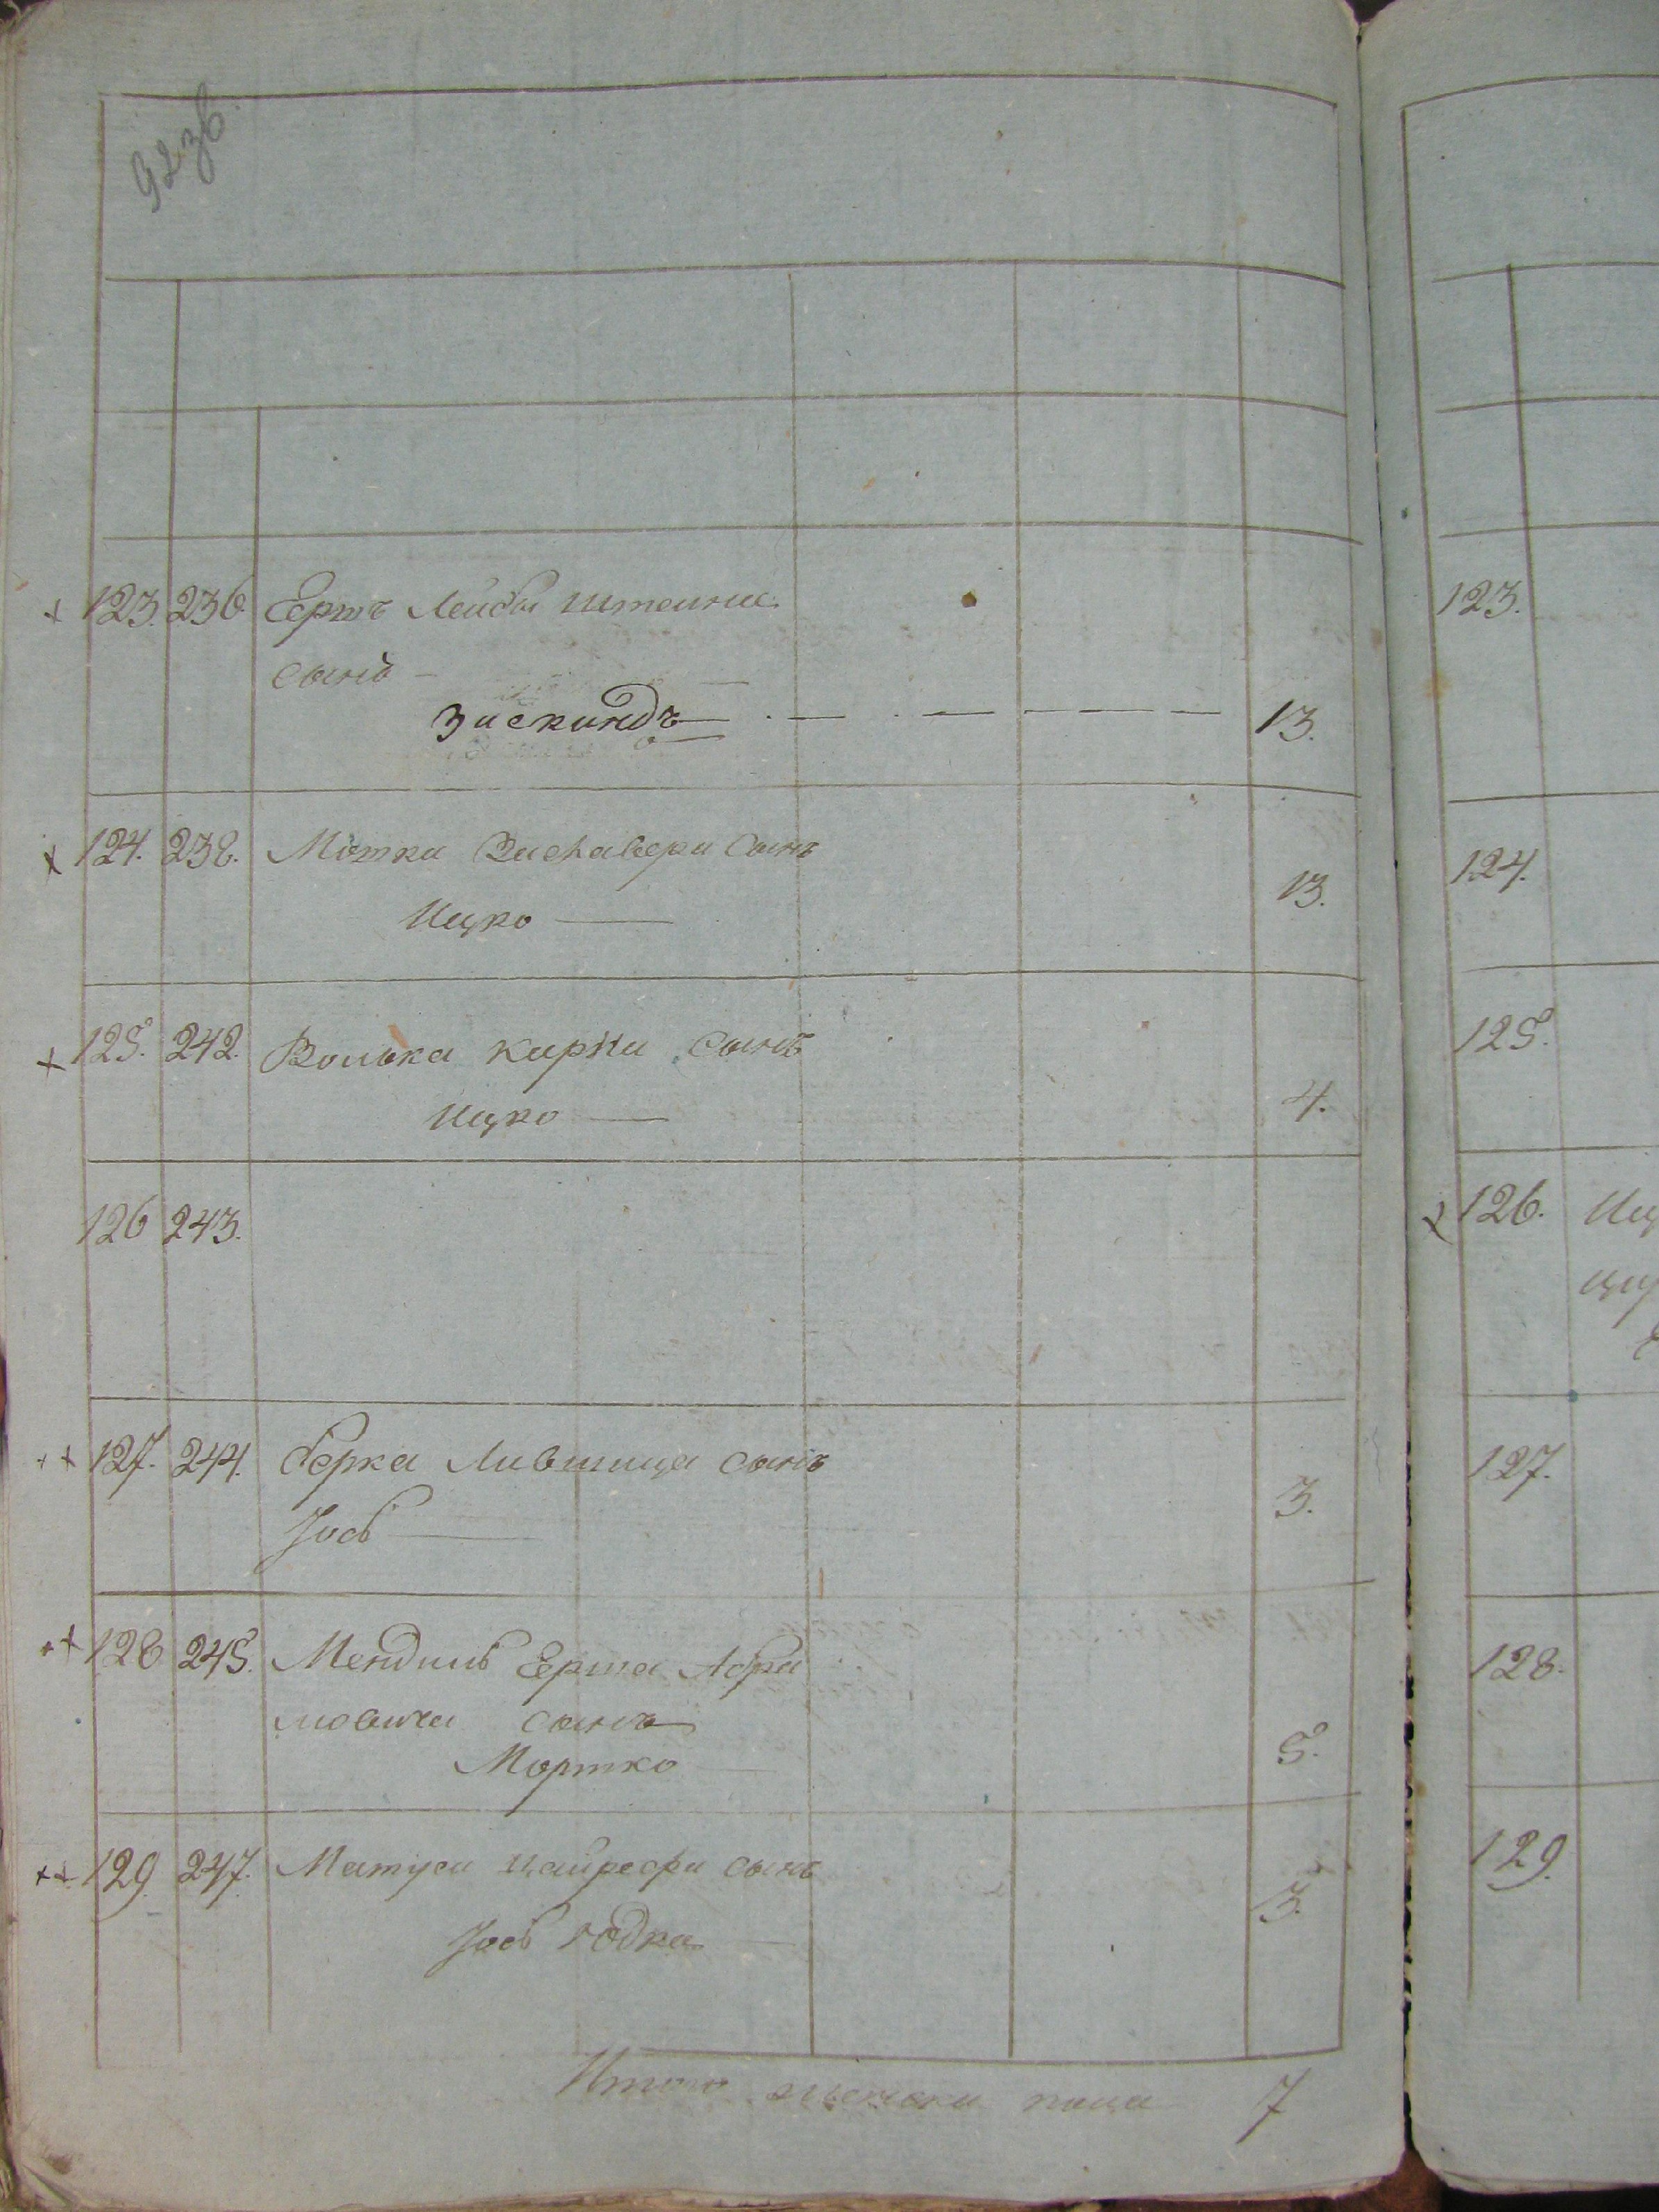 92 зв.
123. 236 Ершъ Лейбы Штеина
сынъ —
Зискиндъ — 13.
124. 238. Мотки Вискавера сынъ
Ицко — 13.
125. 242. Волька карпа сынъ
Ицко — 4.
126 243.
127. 244. берка Лившица сынъ
Јосъ — 3.
128 245. Мендиль Ерша Абра
мовича сынъ
Мортко 5.
129 247. Матуса сынъ
Јосъ юдка 3.
Итого пола 7
123.
124.
125.
126. Иц
127.
128.
129.